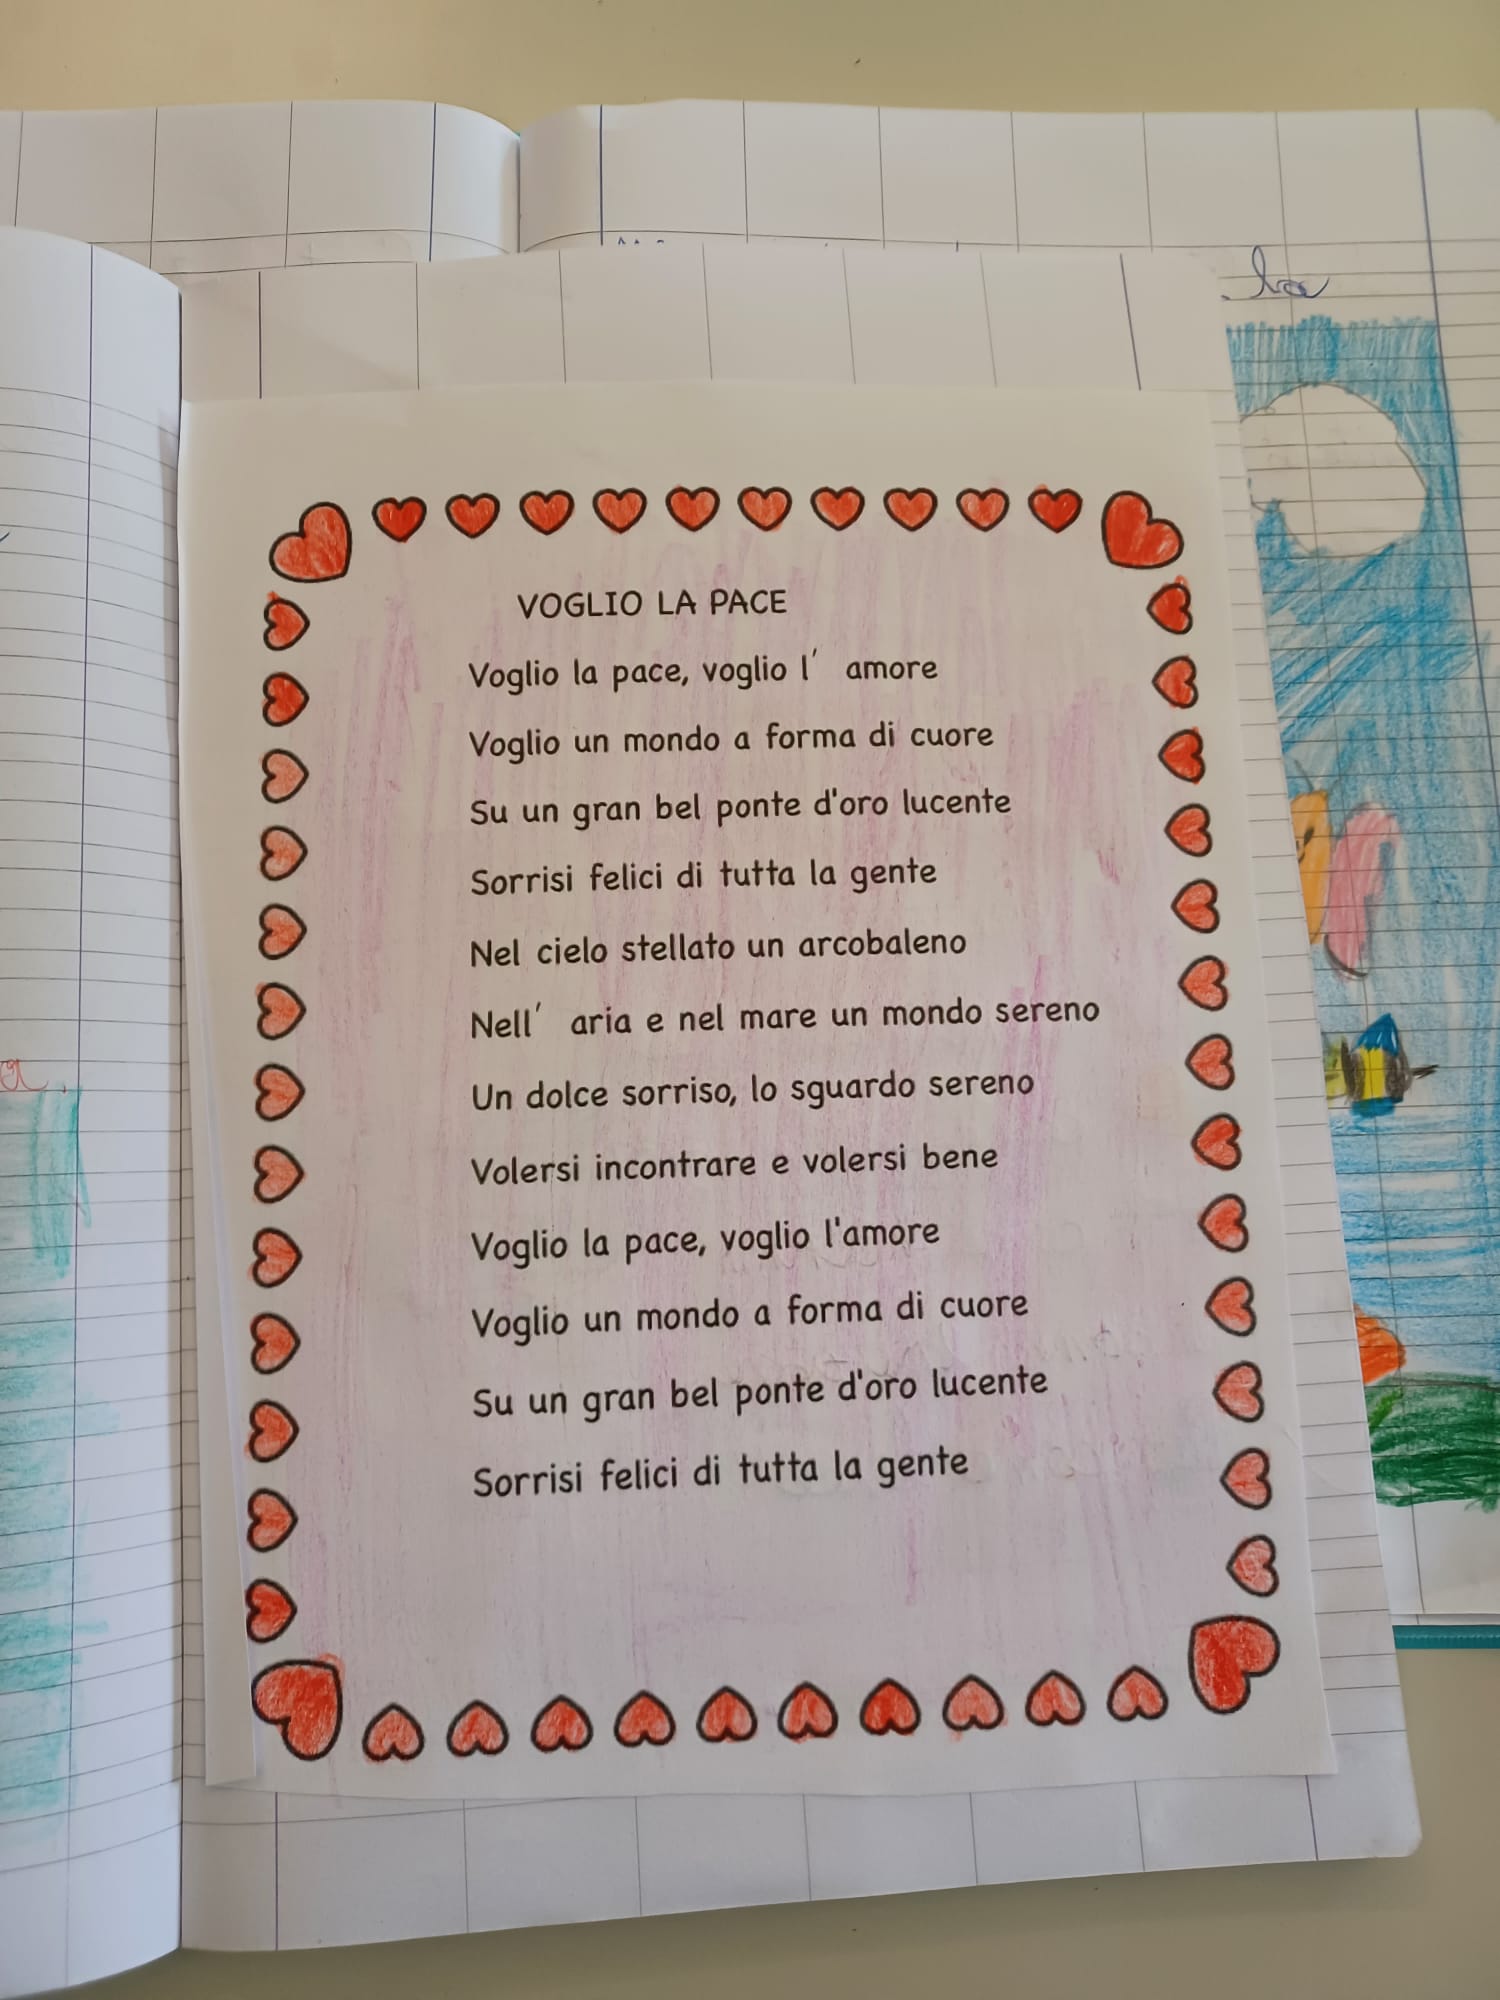 VOGLIO LA PACE
Voglio la pace, voglio l' amore
Voglio un mondo a forma di cuore
Su un gran bel ponte d'oro lucente
Sorrisi felici di tutta la gente
Nel cielo stellato un arcobaleno
Nell' aria e nel mare un mondo sereno
Un dolce sorriso, lo sguardo sereno
Volersi incontrare e volersi bene
Voglio la pace, voglio l'amore
Voglio un mondo a forma di cuore
Su un gran bel ponte d'oro lucente
Sorrisi felici di tutta la gente